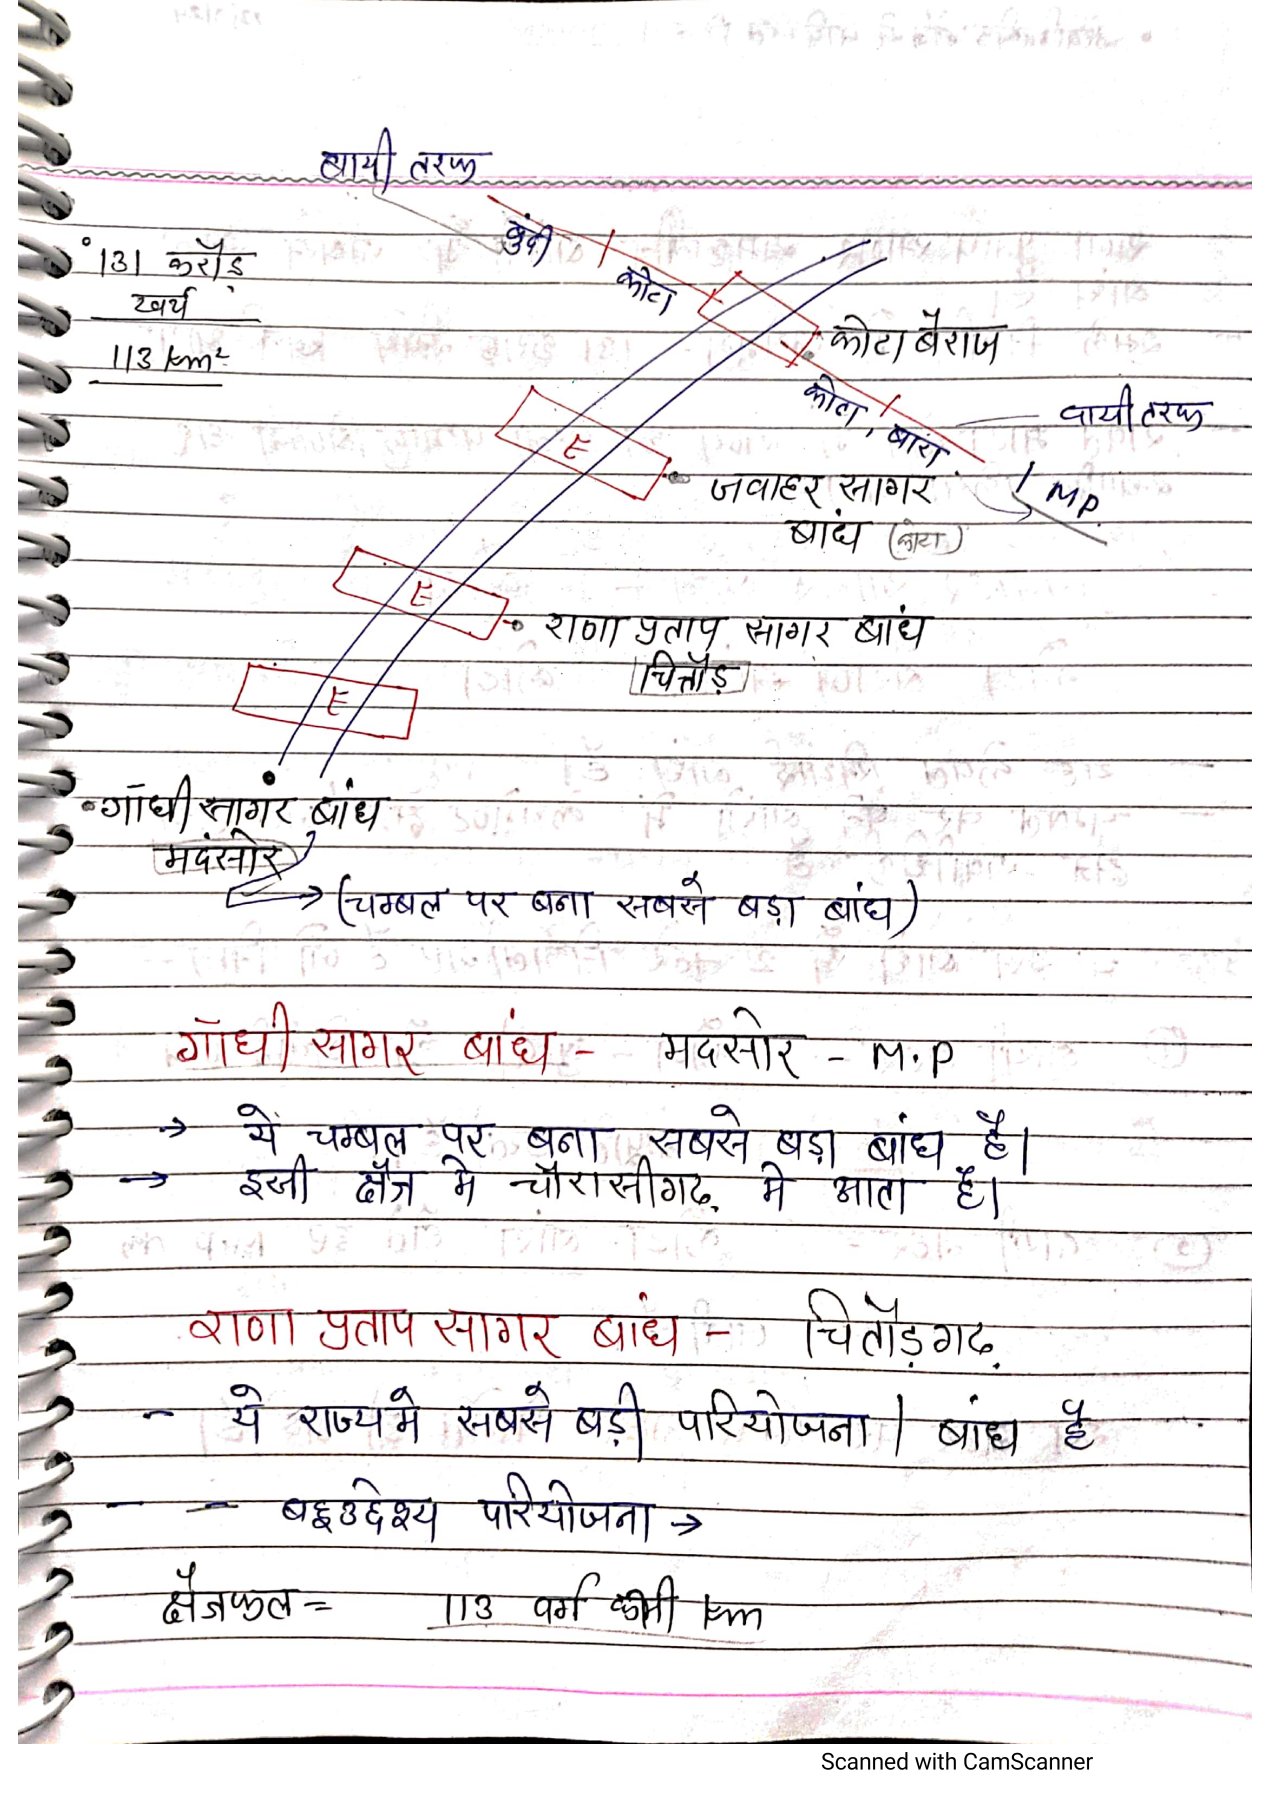 बायी तरफ
बुंदी
कोटा
131 करोड़
खर्च
113 km²
कोटा बैराज
कोटा, बांरा
दायी तरफ
MP
E
जवाहर सागर
बांध (कोटा)
E
राणा प्रताप सागर बांध
चित्तौड़
E
गाँधी सागर बांध
मदंसोर
(चम्बल पर बना सबसे बड़ा बांध)
गाँधी सागर बांध - मदसोर - M.P
→ ये चम्बल पर बना सबसे बड़ा बांध है।
→ इसी क्षैत्र मे चौरासीगढ़ मे आता है।
राणा प्रताप सागर बांध - चितौड़गढ़
- ये राज्य मे सबसे बड़ी परियोजना / बांध है
- - बहुउद्देश्य परियोजना →
क्षैत्रफल = 113 वर्ग कीमी km
Scanned with CamScanner